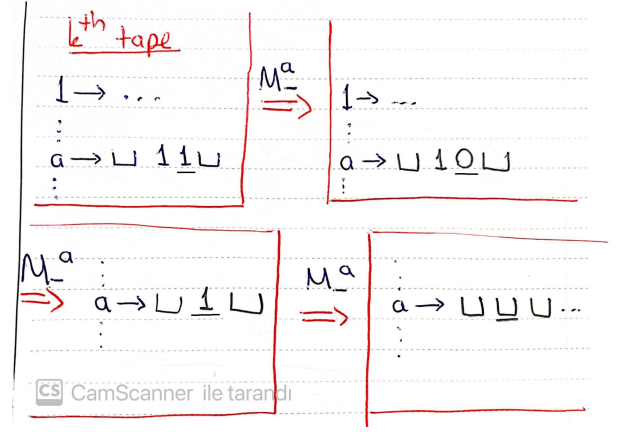 kth tape
1 → ...
⋮
a → ⊔ 1 1 ⊔
⋮
M_^a
⇒
1 → ...
⋮
a → ⊔ 1 0 ⊔
⋮
M_^a
⇒
⋮
a → ⊔ 1 ⊔
⋮
M_^a
⇒
⋮
a → ⊔ ⊔ ⊔ ...
⋮
CS CamScanner ile tarandı